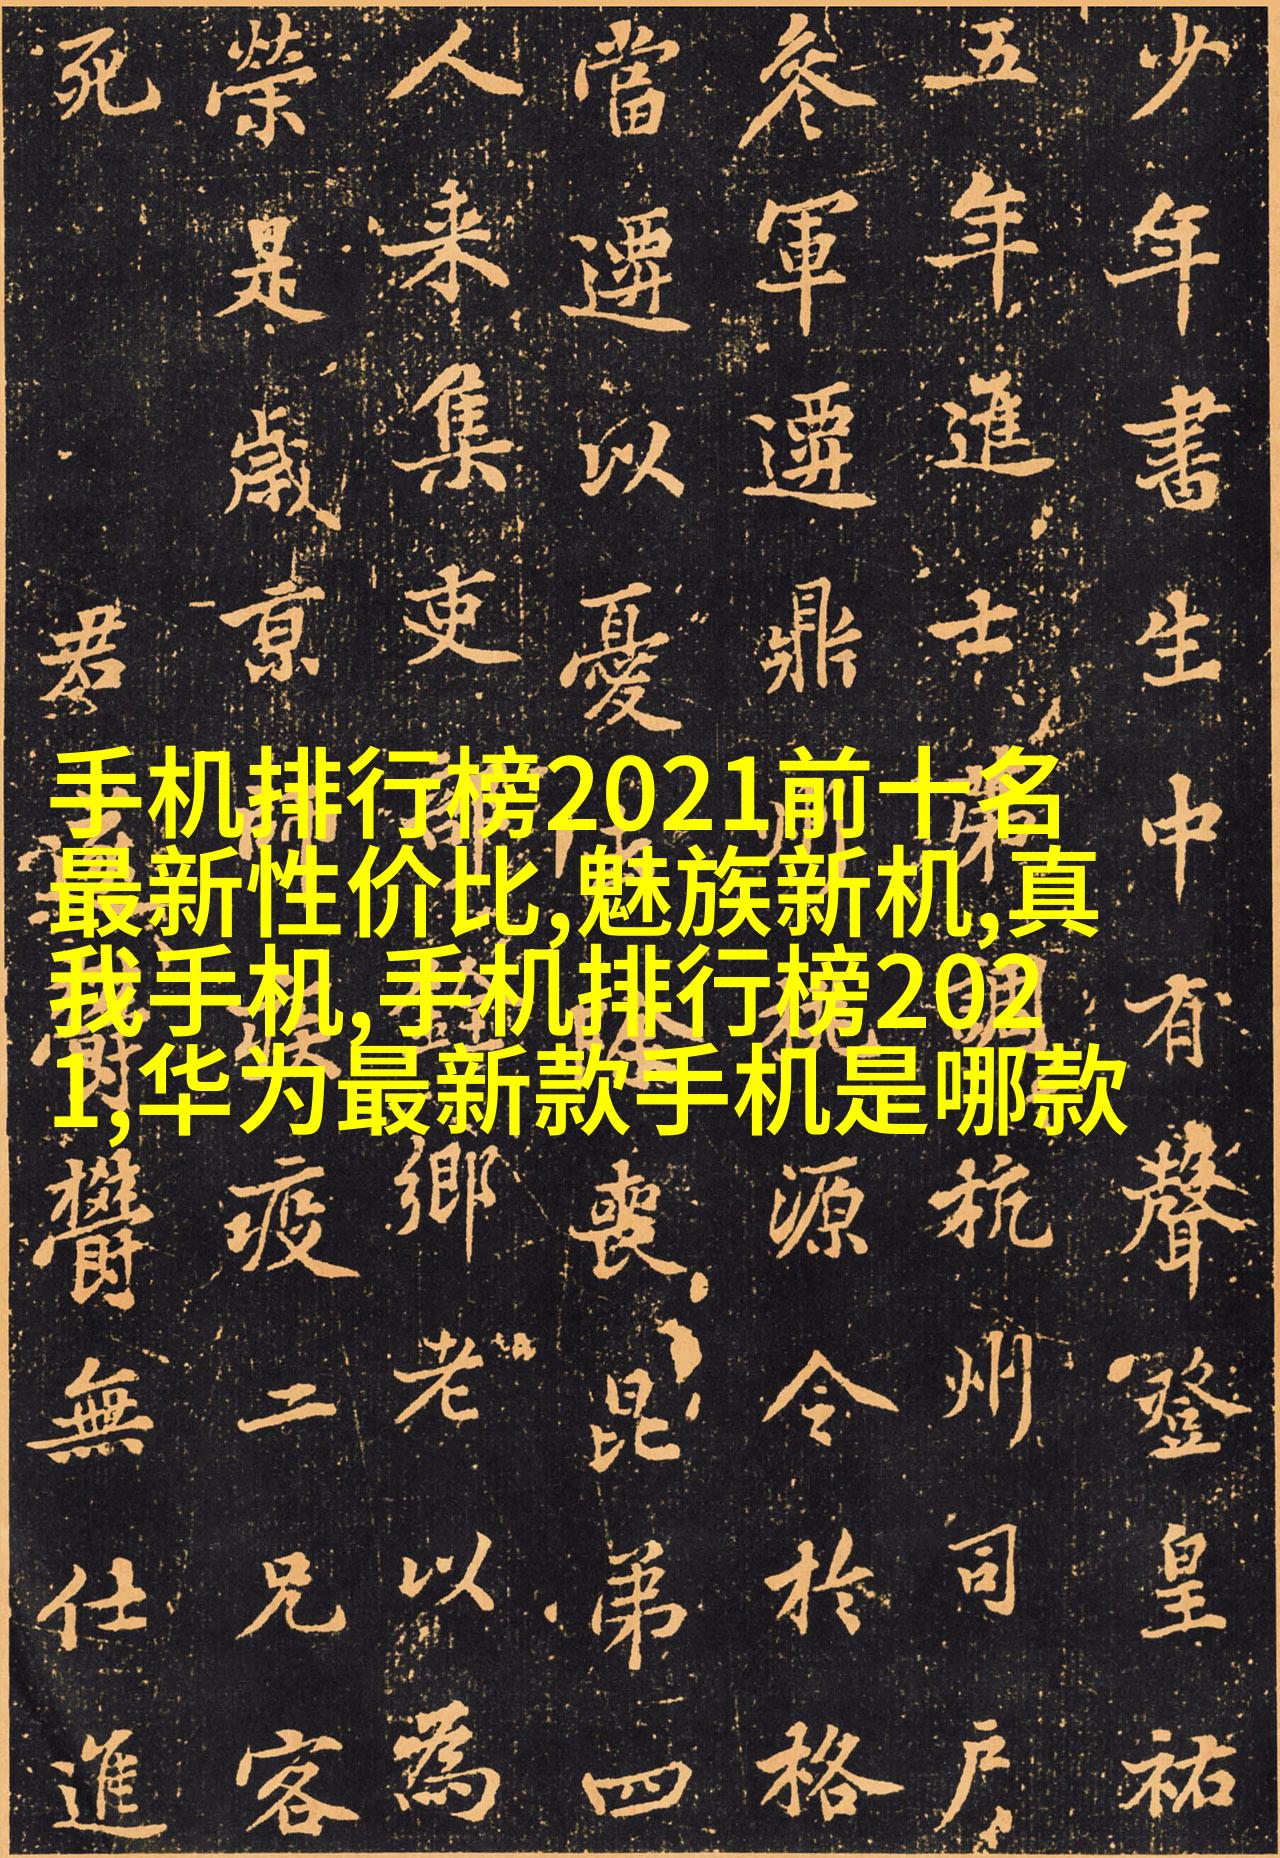 少年書生中有聲登皇祐
五年進士第調杭州司戶
叅軍遷鼎州桃源令於格
當遷以憂喪昆弟四
人来集吏鄉老以為
榮是歲京師疫二兄客
死君欝欝無仕進
手机排行榜2021前十名
最新性价比,魅族新机,真
我手机,手机排行榜202
1,华为最新款手机是哪款